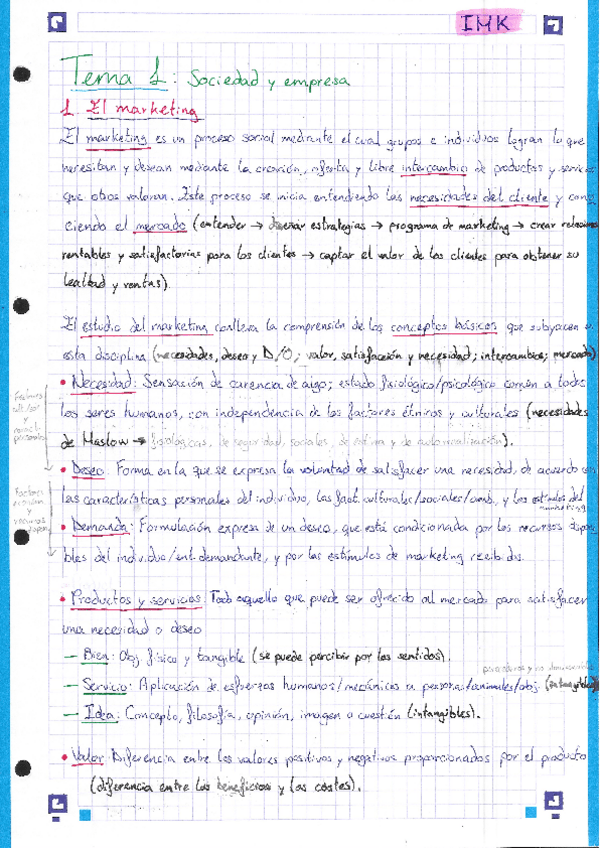 IMK
Tema 1: Sociedad y empresa
1. El marketing
El marketing es un proceso social mediante el cual grupos e individuos logran lo que
necesitan y desean mediante la creación, oferta y libre intercambio de productos y servicios
que otros valoran. Este proceso se inicia entendiendo las necesidades del cliente y cono
ciendo el mercado (entender → diseñar estrategias → programa de marketing → crear relaciones
rentables y satisfactorias para los clientes → captar el valor de los clientes para obtener su
lealtad y ventas).
El estudio del marketing conlleva la comprensión de los conceptos básicos que subyacen a
esta disciplina (necesidades, deseo y D/O; valor, satisfacción y necesidad; intercambios; mercado)
• Necesidad: Sensación de carencia de algo; estado fisiológico/psicológico común a todos
los seres humanos, con independencia de los factores étnicos y culturales (necesidades
de Maslow → fisiológicas, de seguridad, sociales, de estima y de autorrealización).
• Deseo: Forma en la que se expresa la voluntad de satisfacer una necesidad, de acuerdo con
las características personales del individuo, los fact. culturales/sociales/amb. y los estímulos del
marketing
• Demanda: Formulación expresa de un deseo, que está condicionada por los recursos dispon
bles del individuo/ent. demandante, y por los estímulos de marketing recibidos.
• Productos y servicios: Todo aquello que puede ser ofrecido al mercado para satisfacer
una necesidad o deseo
— Bien: Obj. físico y tangible (se puede percibir por los sentidos).
— Servicio: Aplicación de esfuerzos humanos/mecánicos a personas/animales/obj. (intangibles)
— Idea: Concepto, filosofía, opinión, imagen o cuestión (intangibles).
• Valor: Diferencia entre los valores positivos y negativos proporcionados por el producto
(diferencia entre los beneficios y los costes).